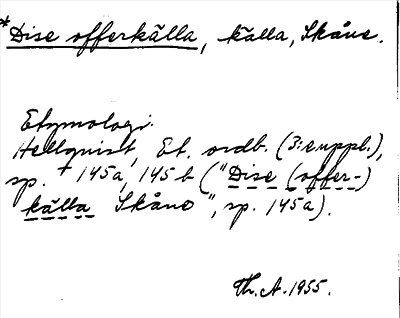 *Dise offerkälla, källa, Skåne.
Etymologi.
Hellquist, Et. ordb. (3:suppl.),
sp. 145a, 145b ("Dise (offer-)
källa Skåne", sp. 145a).
Th. A. 1955.